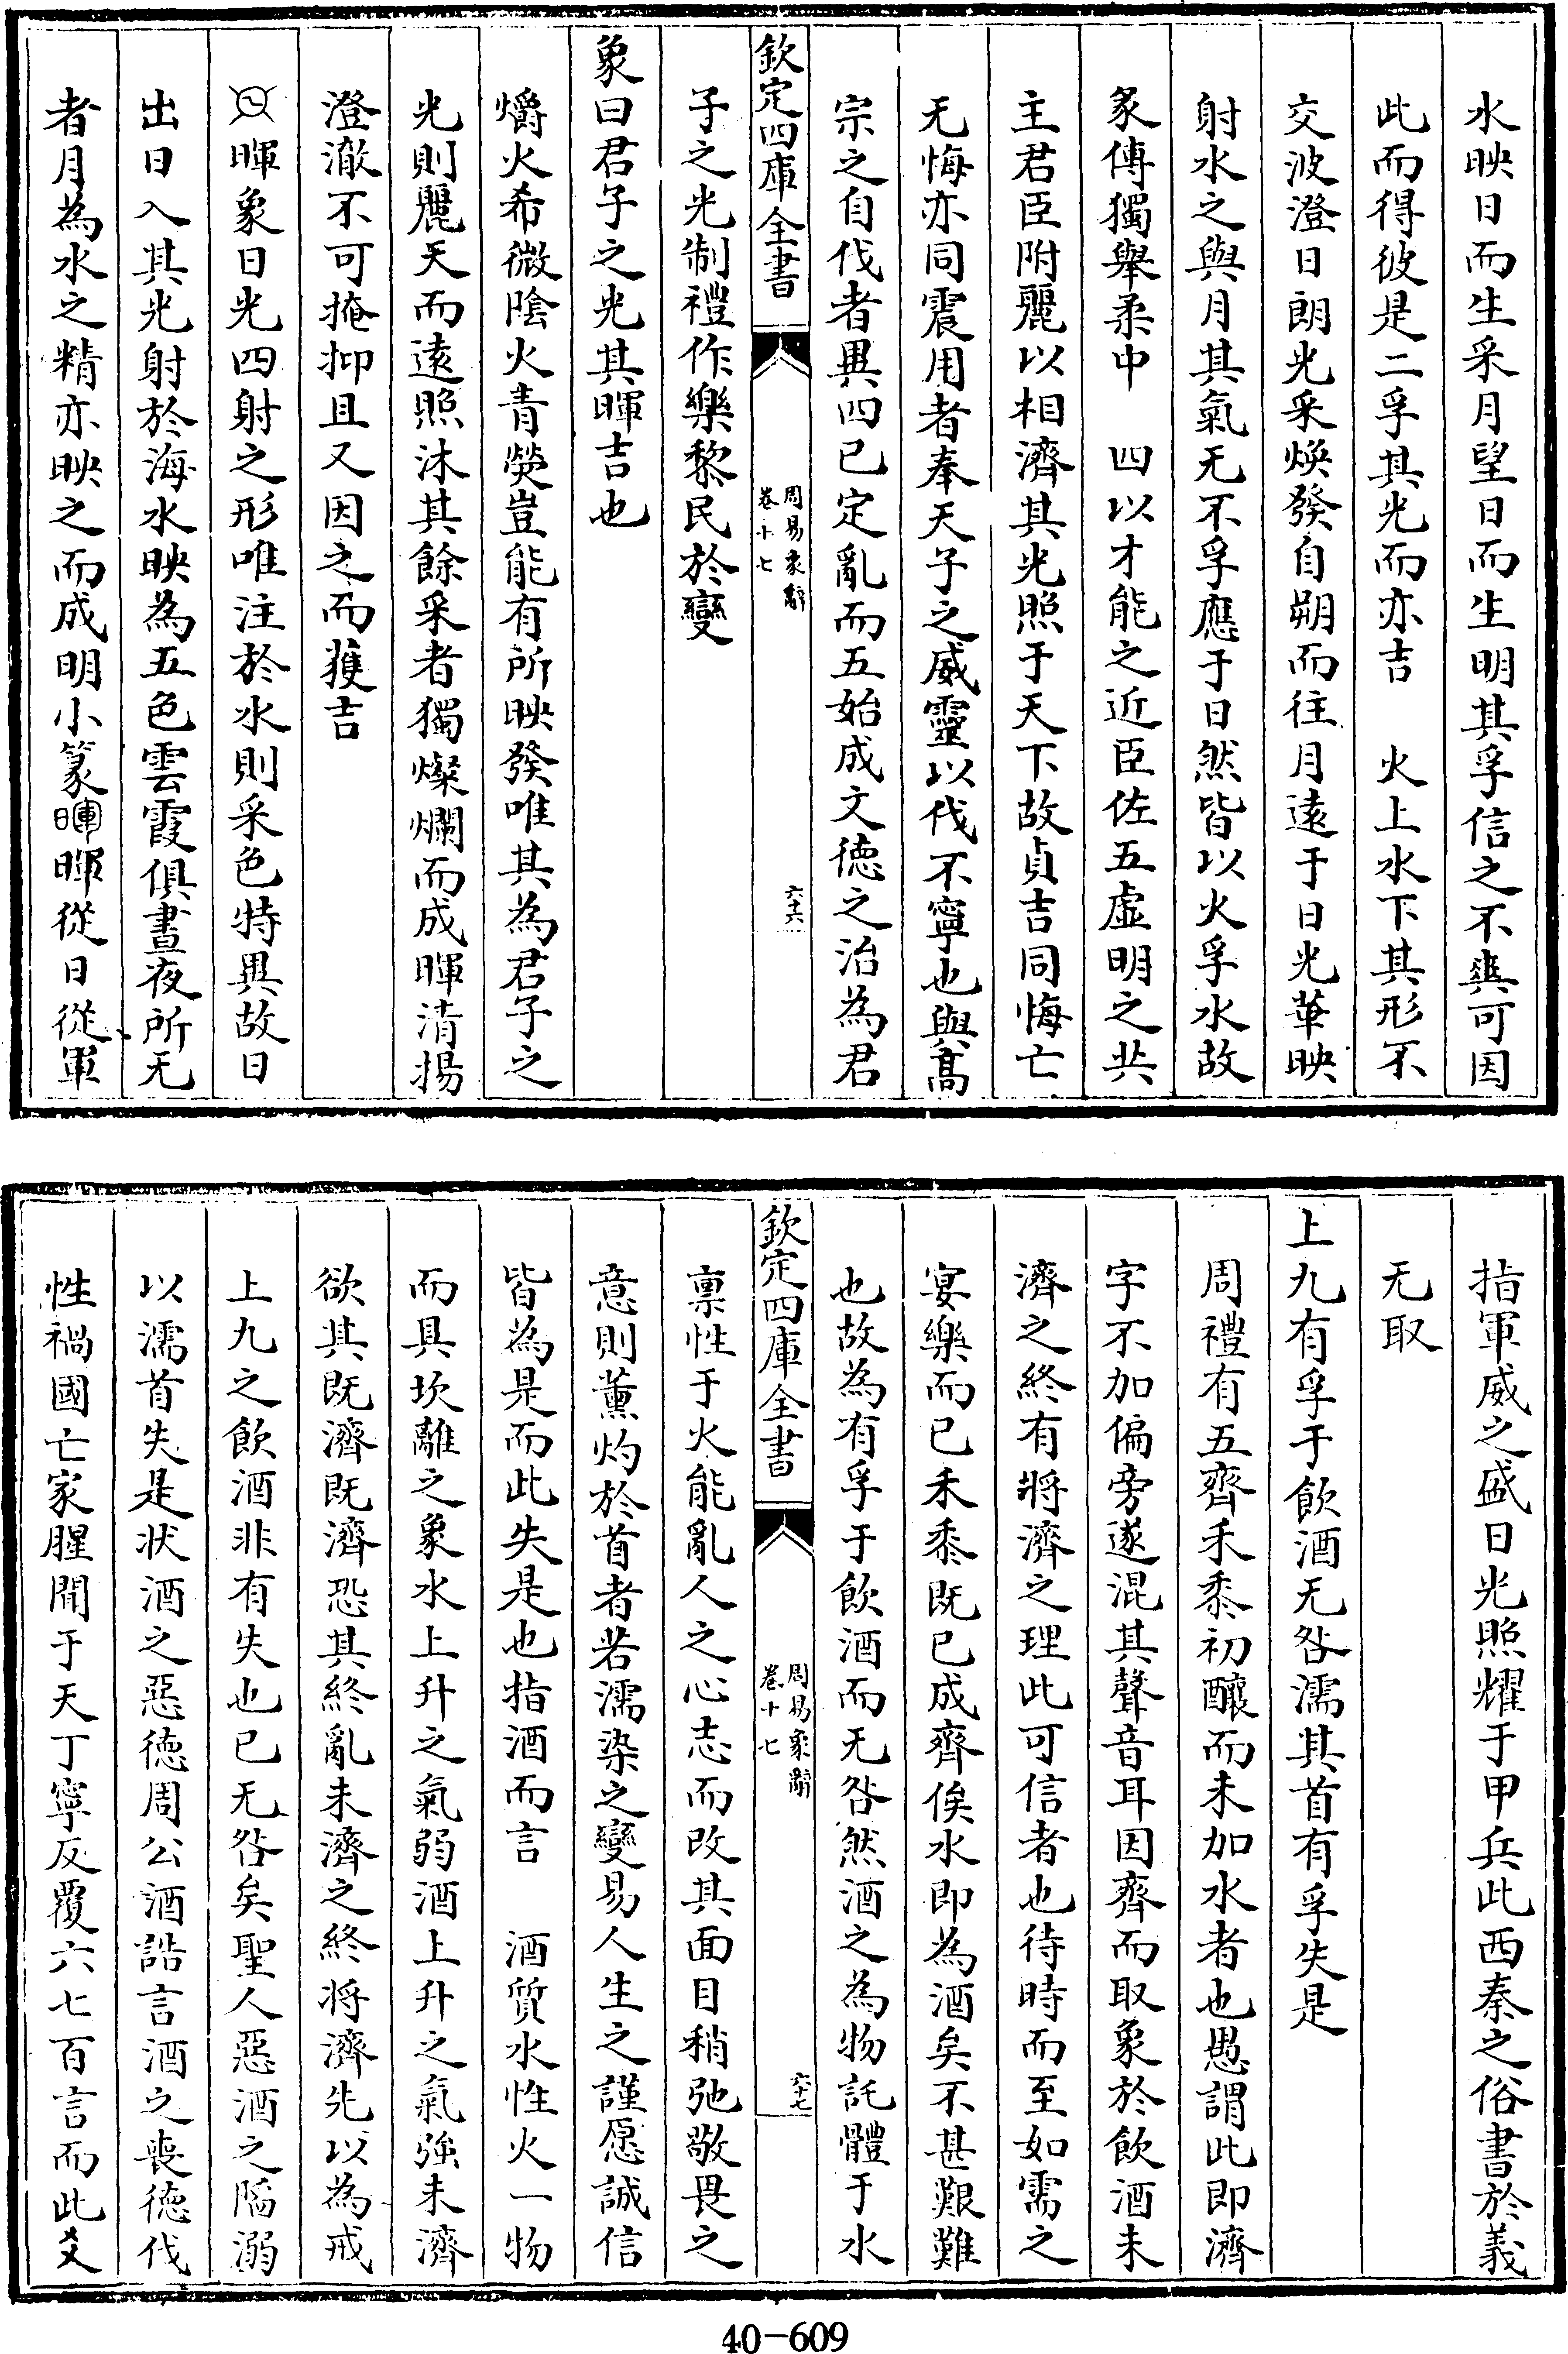 水映日而生采月望日而生明其孚信之不爽可因
此而得彼是二孚其光而亦吉　火上水下其形不
交波澄日朗光采煥發自朔而往月遠于日光華映
射水之與月其氣无不孚應于日然皆以火孚水故
彖傳獨舉柔中　四以才能之近臣佐五虛明之共
主君臣附麗以相濟其光照于天下故貞吉同悔亡
无悔亦同震用者奉天子之威靈以伐不寧也與髙
宗之自伐者異四已定亂而五始成文德之治為君
欽定四庫全書
周易象辭
卷十七
六十六
子之光制禮作樂黎民於變
象曰君子之光其暉吉也
爝火希微陰火青熒豈能有所映發唯其為君子之
光則麗天而逺照沐其餘采者獨燦爛而成暉清揚
澄澈不可掩抑且又因之而獲吉
暉象日光四射之形唯注於水則采色特異故日
出日入其光射於海水映為五色雲霞俱晝夜所无
者月為水之精亦映之而成明小篆暉暉從日從軍
指軍威之盛日光照耀于甲兵此西秦之俗書於義
无取
上九有孚于飲酒无咎濡其首有孚失是
周禮有五齊禾黍初釀而未加水者也愚謂此即濟
字不加偏旁遂混其聲音耳因齊而取象於飲酒未
濟之終有將濟之理此可信者也待時而至如需之
宴樂而已禾黍既已成齊俟水即為酒矣不甚艱難
也故為有孚于飲酒而无咎然酒之為物託體于水
欽定四庫全書
周易象辭
卷十七
六十七
稟性于火能亂人之心志而改其面目稍弛敬畏之
意則薰灼於首者若濡染之變易人生之謹愿誠信
皆為是而此失是也指酒而言　酒質水性火一物
而具坎離之象水上升之氣弱酒上升之氣強未濟
欲其既濟既濟恐其終亂未濟之終將濟先以為戒
上九之飲酒非有失也已无咎矣聖人惡酒之陷溺
以濡首失是状酒之惡德周公酒誥言酒之喪德伐
性禍國亡家腥聞于天丁寧反覆六七百言而此爻
40-609